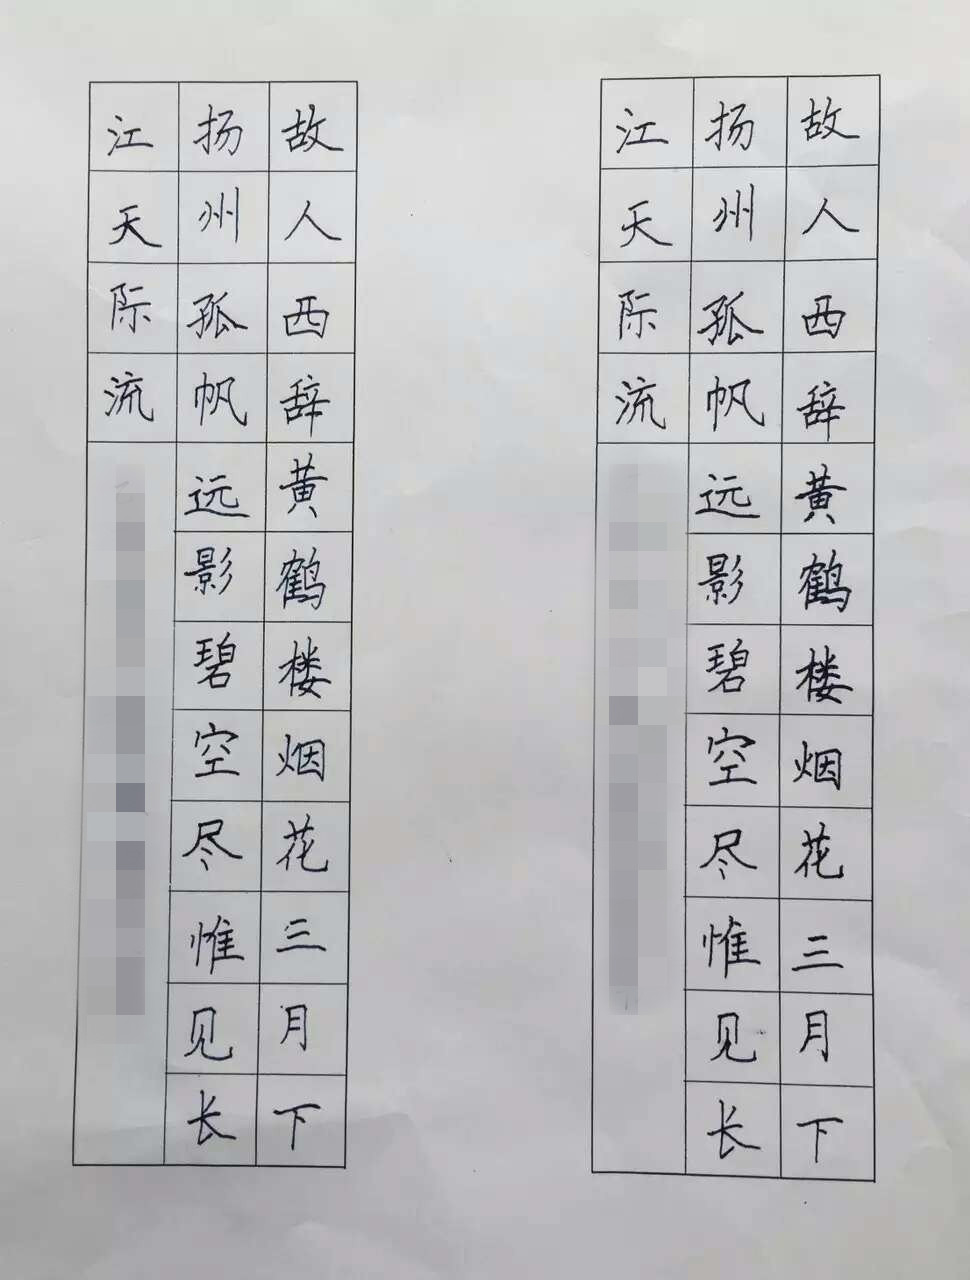 故人西辞黄鹤楼烟花三月下
扬州孤帆远影碧空尽惟见长
江天际流
故人西辞黄鹤楼烟花三月下
扬州孤帆远影碧空尽惟见长
江天际流